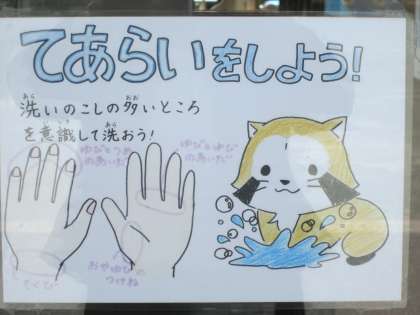 てあらいをしよう!
洗いのこしの多いところ
を意識して洗おう!
ゆびとつめ
のあいだ
ゆびとゆび
のあいだ
おやゆびの
つけね
てくび